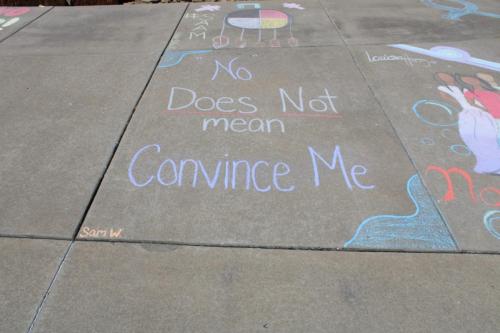 No
Does Not
mean
Convince Me
Sam W.